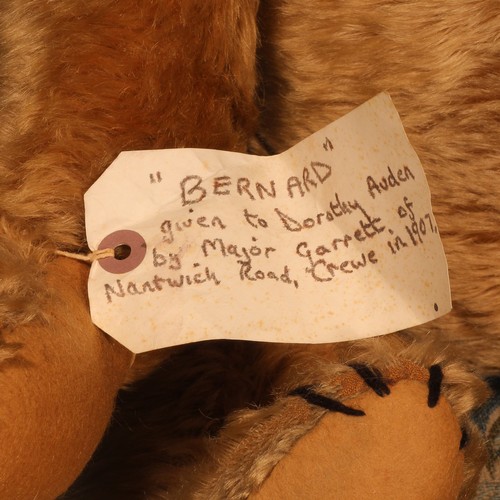 "BERNARD"
given to Dorothy Auden
by Major Garrett of
Nantwich Road, Crewe in 1907.